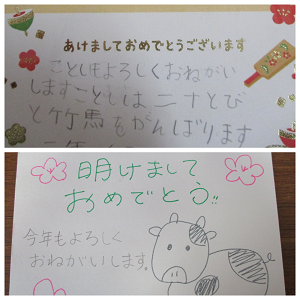 あけましておめでとうございます
ことしもよろしくおねがい
しますことしは二十とび
と竹馬をがんばります
明けまして
おめでとう!!
今年もよろしく
おねがいします。